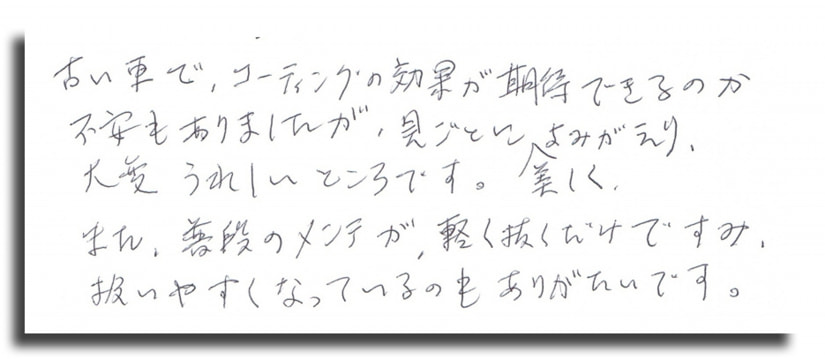 古い車で、コーティングの効果が期待できるのか
不安もありましたが、見ごとに美しくよみがえり、
大変うれしいところです。
また、普段のメンテが、軽く拭くだけですみ、
扱いやすくなっているのもありがたいです。